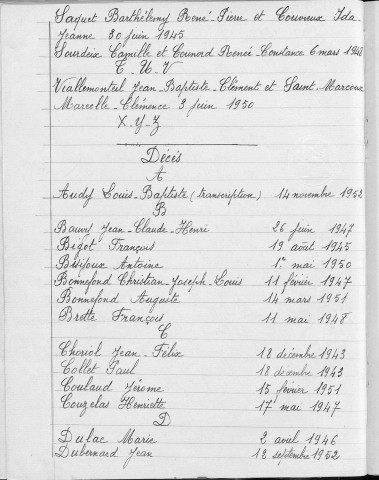 Saquet Barthélemy René-Pierre et Couvreux Ida
Jeanne 30 juin 1945
Sourdeix Camille et Counord Renée-Constance 6 mars 1948
T-U-V
Viallemonteil Jean Baptiste-Clément et Saint-Marcoux
Marcelle-Clémence 3 juin 1950
X-Y-Z
Décés
A
Audy Louis-Baptiste (transcription) 14 novembre 1952
B
Bauvy Jean-Claude-Henri 26 juin 1947
Bigot François 19 août 1945
Bisijoux Antoine 1er mai 1950
Bonnefond Christian-Joseph-Louis 11 février 1947
Bonnefond Auguste 14 mars 1951
Brette François 11 mai 1948
C
Choriol Jean-Félix 18 décembre 1943
Collet Paul 18 décembre 1943
Coulaud Jérome 15 février 1951
Couzelas Henriette 17 mai 1947
D
Dulac Marie 2 avril 1946
Dubernard Jean 12 septembre 1952